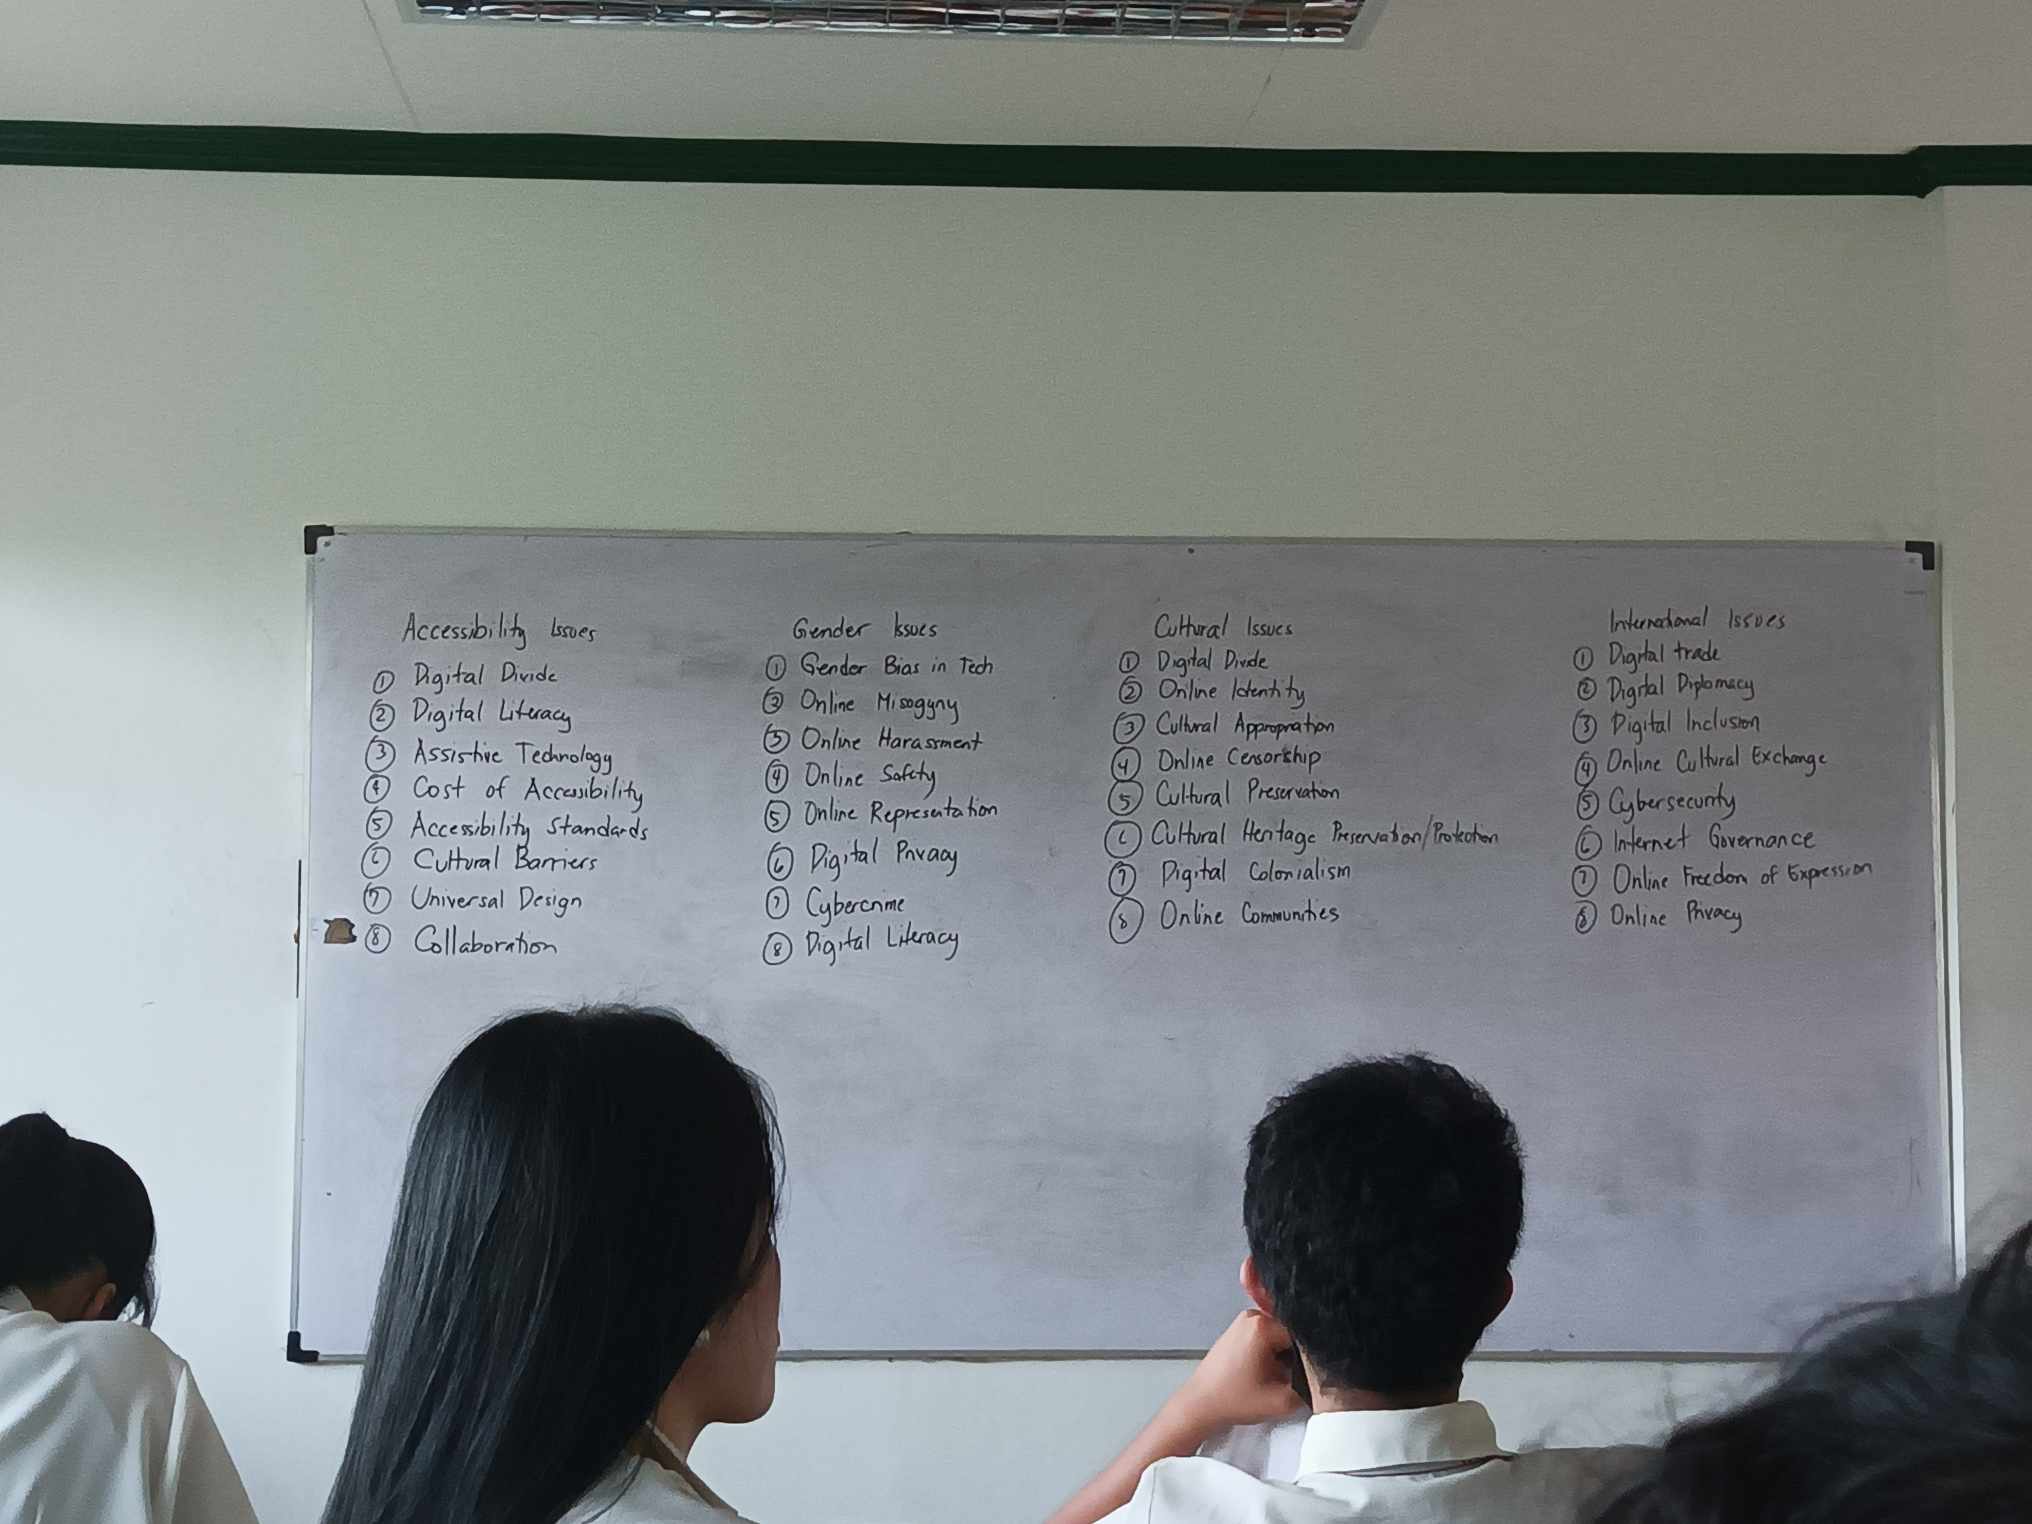 Accessibility Issues
① Digital Divide
② Digital Literacy
③ Assistive Technology
④ Cost of Accessibility
⑤ Accessibility Standards
⑥ Cultural Barriers
⑦ Universal Design
⑧ Collaboration
Gender Issues
① Gender Bias in Tech
② Online Misogyny
③ Online Harassment
④ Online Safety
⑤ Online Representation
⑥ Digital Privacy
⑦ Cybercrime
⑧ Digital Literacy
Cultural Issues
① Digital Divide
② Online Identity
③ Cultural Appropriation
④ Online Censorship
⑤ Cultural Preservation
⑥ Cultural Heritage Preservation/Protection
⑦ Digital Colonialism
⑧ Online Communities
International Issues
① Digital trade
② Digital Diplomacy
③ Digital Inclusion
④ Online Cultural Exchange
⑤ Cybersecurity
⑥ Internet Governance
⑦ Online Freedom of Expression
⑧ Online Privacy